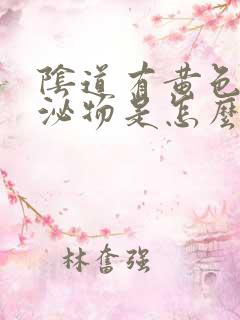 陰道有黃色
泌物是怎麼
林奮强